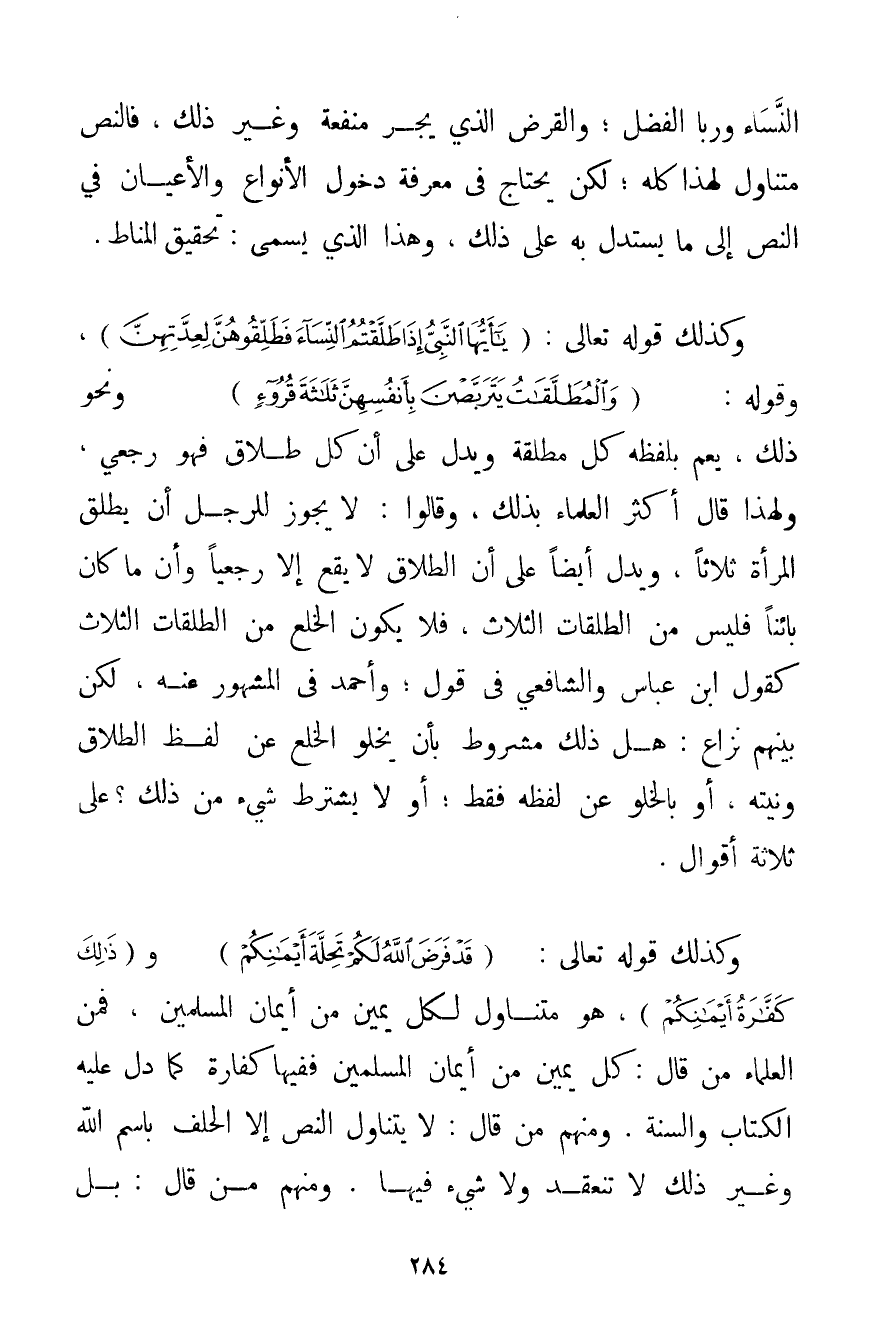 النَّسَاء وربا الفضل ؛ والقرض الذي يجـر منفعة وغـير ذلك ، فالنص
متناول لهذا كله ؛ لكن يحتاج فى معرفة دخول الأنواع والأعيـان في
النص إلى ما يستدل به على ذلك ، وهذا الذي يسمى : تحقيق المناط .
وكذلك قوله تعالى : ( يَٰٓأَيُّهَا ٱلنَّبِىُّ إِذَا طَلَّقْتُمُ ٱلنِّسَآءَ فَطَلِّقُوهُنَّ لِعِدَّتِهِنَّ ) ،
وقوله : ( وَٱلْمُطَلَّقَٰتُ يَتَرَبَّصْنَ بِأَنفُسِهِنَّ ثَلَٰثَةَ قُرُوٓءٍ ) ونحو
ذلك ، يعم بلفظه كل مطلقة ويدل على أن كل طـلاق فهو رجعي ،
ولهذا قال أكثر العلماء بذلك ، وقالوا : لا يجوز للرجـل أن يطلق
المرأة ثلاثاً ، ويدل أيضاً على أن الطلاق لا يقع إلا رجعياً وأن ما كان
بائناً فليس من الطلقات الثلاث ، فلا يكون الخلع من الطلقات الثلاث
كقول ابن عباس والشافعي فى قول ؛ وأحمد فى المشهور عنـه ، لكن
بينهم نزاع : هـل ذلك مشروط بأن يخلو الخلع عن لفـظ الطلاق
ونيته ، أو بالخلو عن لفظه فقط ؛ أو لا يشترط شيء من ذلك ؟ على
ثلاثة أقوال .
وكذلك قوله تعالى : ( قَدْ فَرَضَ ٱللَّهُ لَكُمْ تَحِلَّةَ أَيْمَٰنِكُمْ ) و ( ذَٰلِكَ
كَفَّٰرَةُ أَيْمَٰنِكُمْ ) ، هو متنـاول لـكل يمين من أيمان المسلمين ، فمن
العلماء من قال : كل يمين من أيمان المسلمين ففيها كفارة كما دل عليه
الكتاب والسنة . ومنهم من قال : لا يتناول النص إلا الحلف باسم الله
وغـير ذلك لا تنعقـد ولا شيء فيهـا . ومنهم مـن قال : بـل
٢٨٤